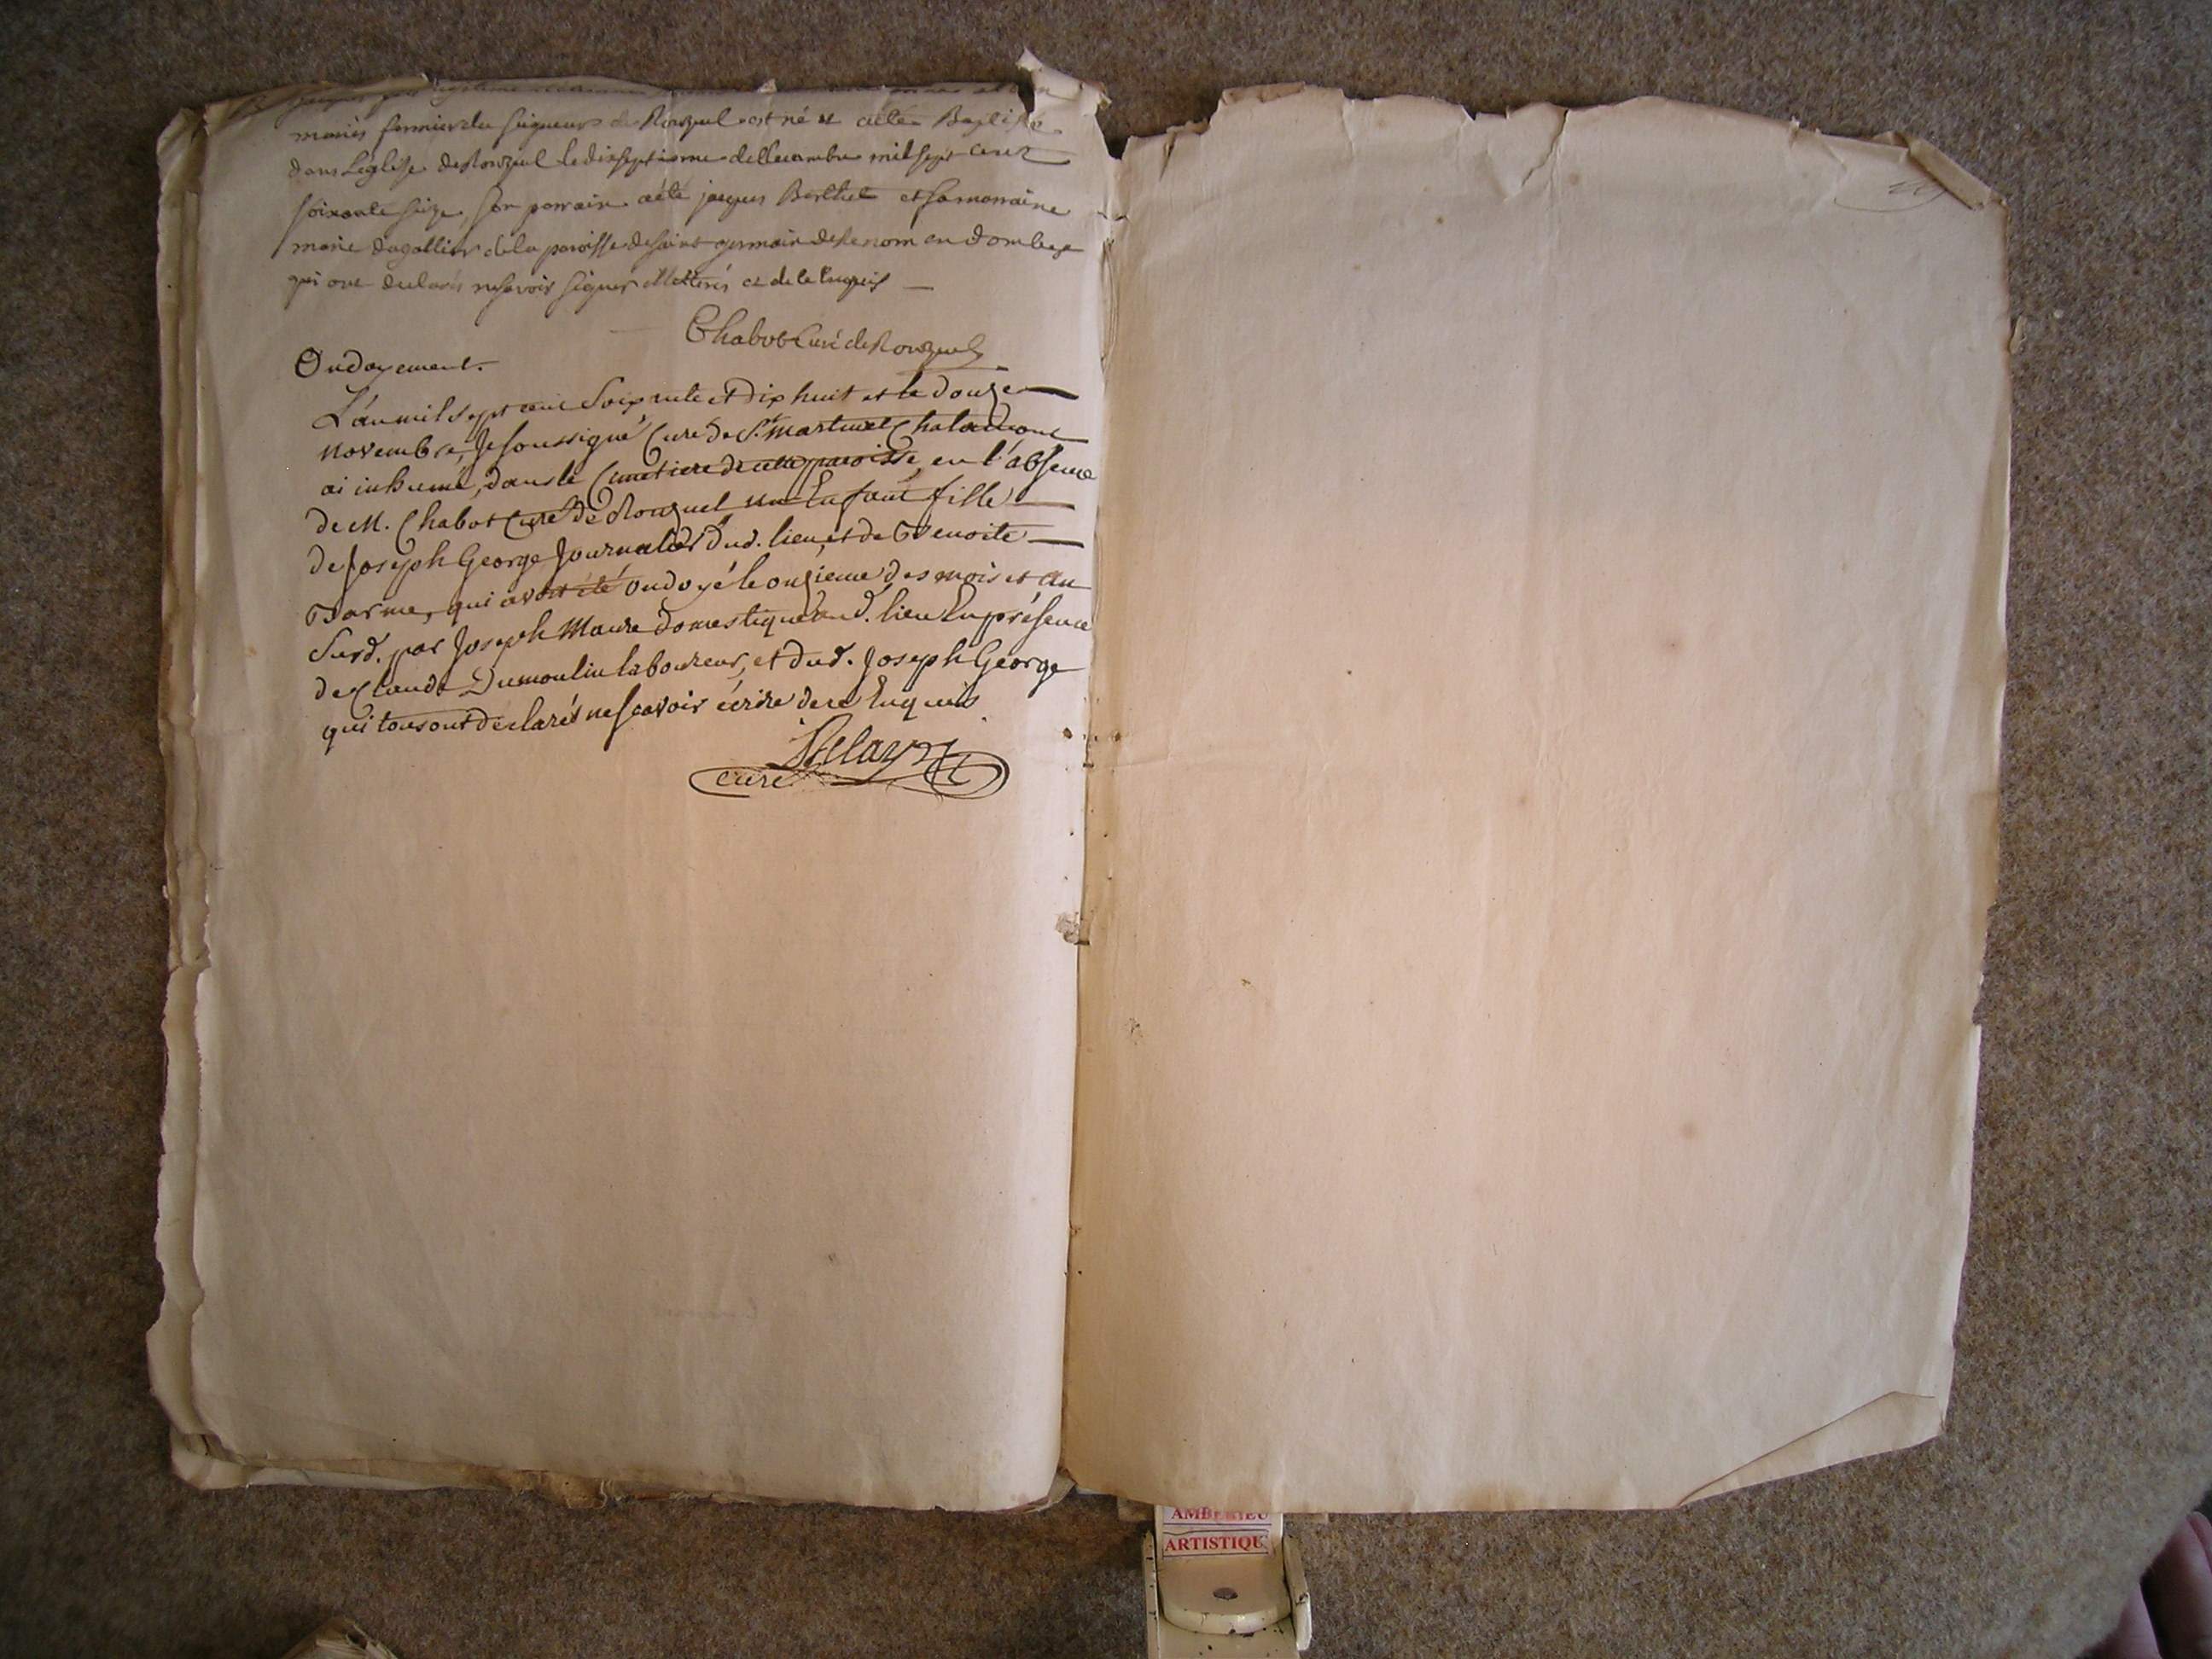 mariés fermier du seigneur de Ronzuel est né et a été Baptisé
dans L'eglise de Ronzuel le dixseptieme decembre mil sept cent
soixante seize, son parrain a été jaques Berthet et sa marraine
marie dagallier de la paroisse de saint germain de Renom en dombes
qui ont declarés ne savoir signer de ce Enquis
Chabot Curé de Ronzuel
Ondoyement.
L'an mil sept cent Soixante et Dix huit et le douze
novembre, Je soussigné Curé de St. Martin et Chalamont
ai inhumé, dans le Cimetiere de cette paroisse, en l'absence
de M. Chabot Curé de Ronzuel un Enfant fille
de Joseph George Journalier dud. lieu, et de Benoite
Darme, qui avoit été ondoyé le onzieme des mois et an
Susd. par Joseph Maure domestique aud. lieu En présence
de Claude Dumoulin laboureur, et dud. Joseph George
qui tous ont déclarés ne sçavoir écrire de ce Enquis
curé
AMBERIEU
ARTISTIQU